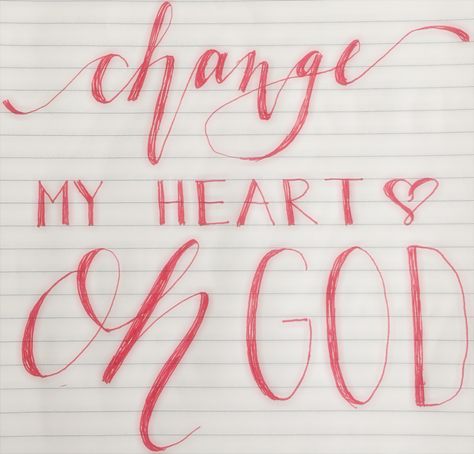 change
MY HEART
oh GOD